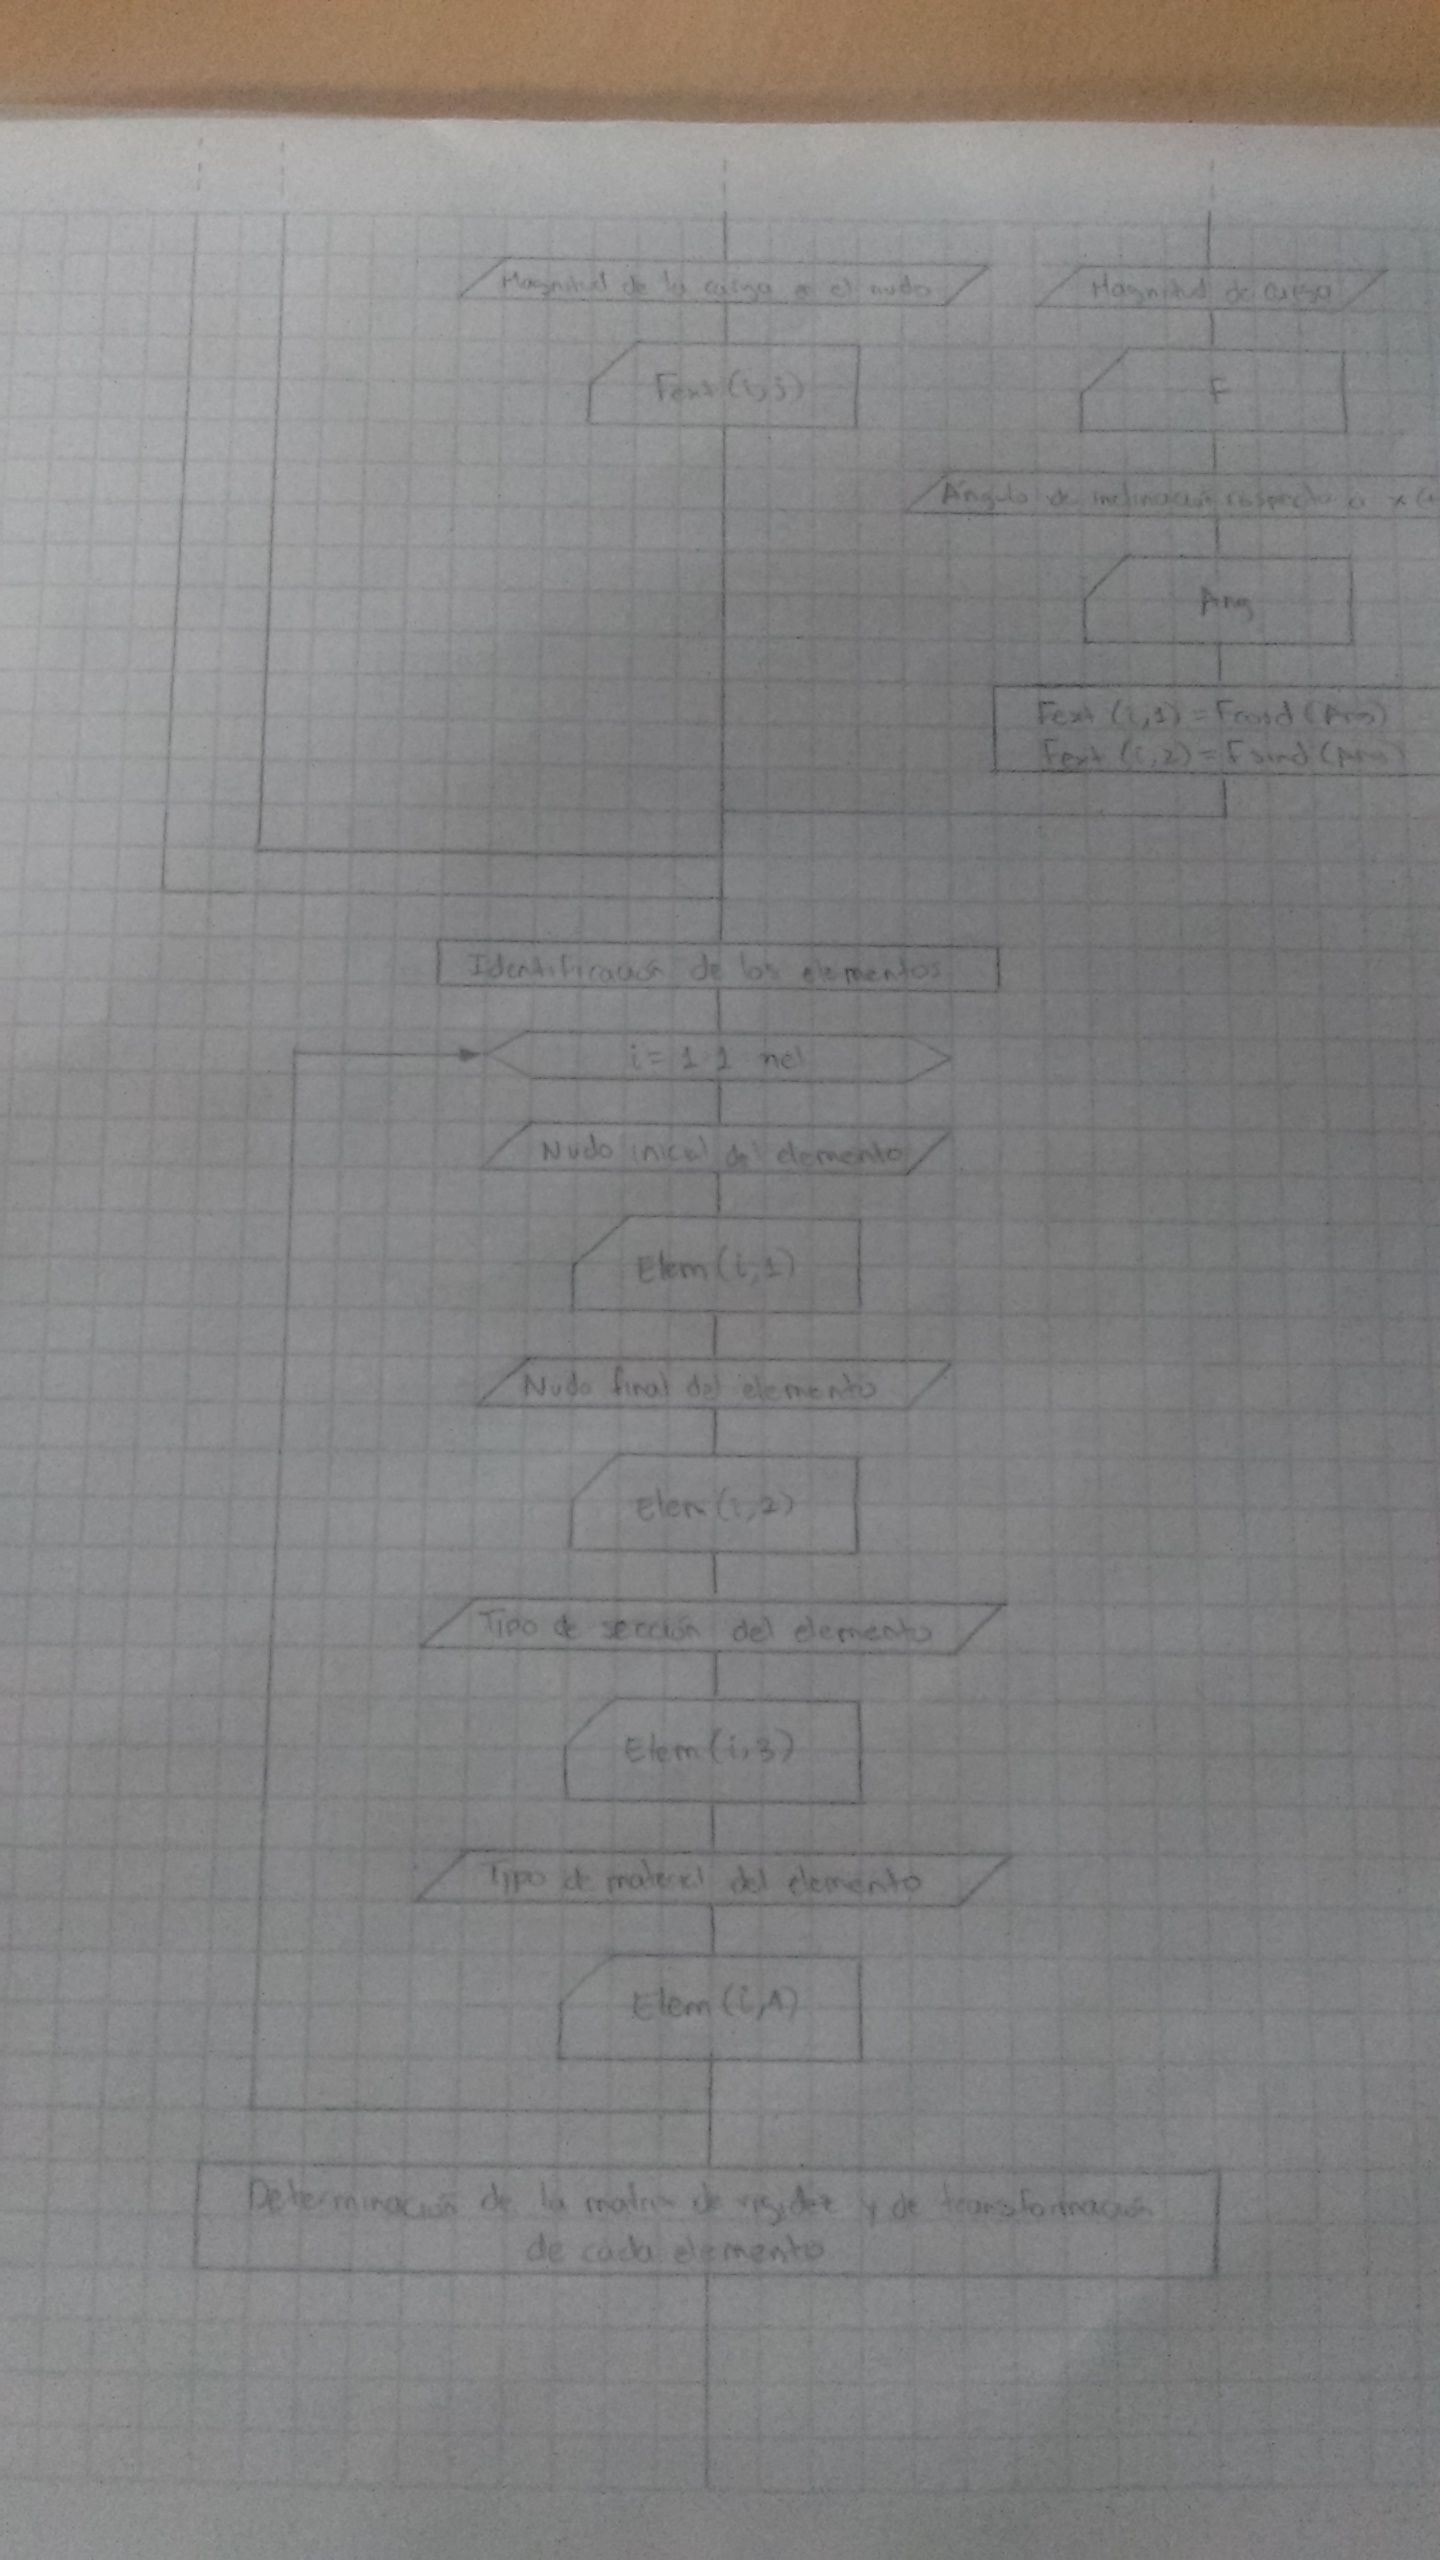 Magnitud de la carga en el nudo
Fext (i,j)
Magnitud de carga
F
Ángulo de inclinación respecto a x (+
Ang
Fext (i,1) = Fcosd (Ang)
Fext (i,2) = Fsind (Ang)
Identificación de los elementos
i = 1 1 nel
Nudo inicial del elemento
Elem (i,1)
Nudo final del elemento
Elem (i,2)
Tipo de sección del elemento
Elem (i,3)
Tipo de material del elemento
Elem (i,4)
Determinación de la matriz de rigidez y de transformación
de cada elemento